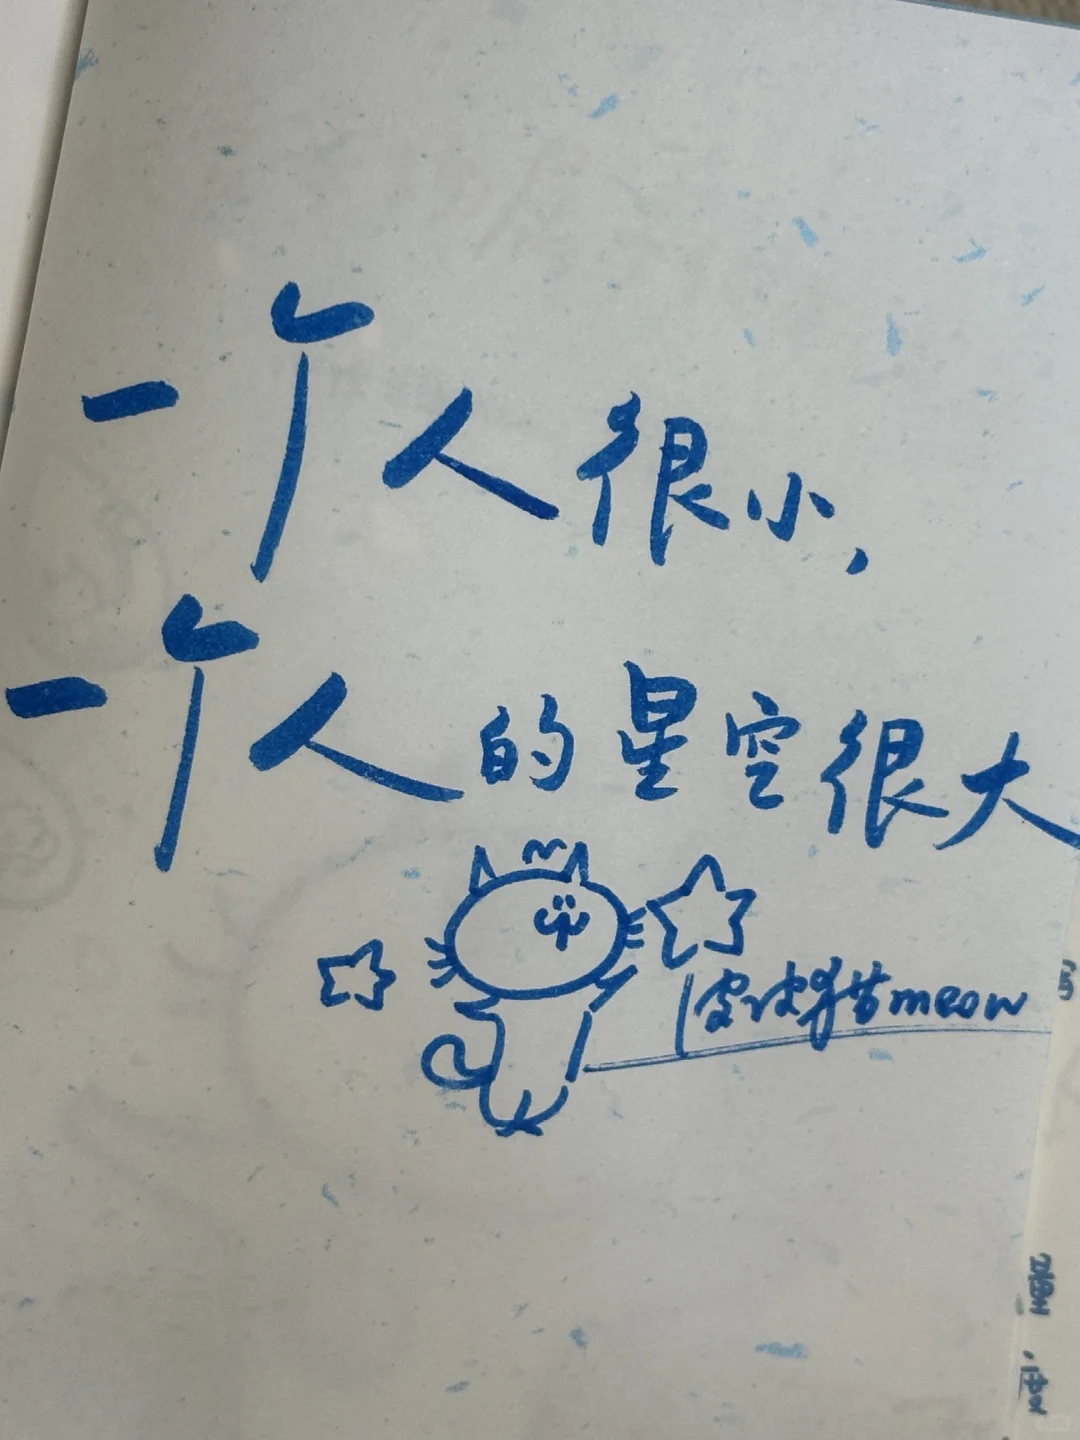 一个人很小，
一个人的星空很大
皮皮猫meow